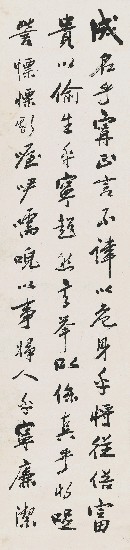 成名乎寧正言不諱以危身乎將從俗富
貴以偷生乎寧超然高舉以保真乎將哫
訾慄斯喔咿嚅唲以事婦人乎寧廉潔